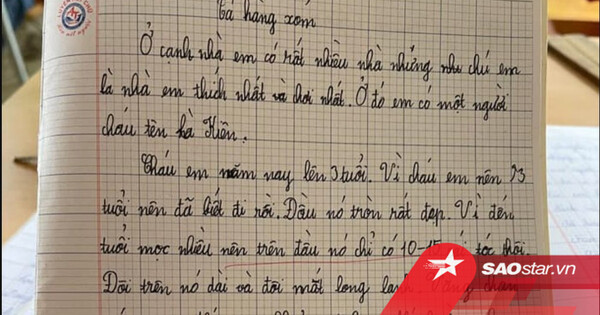 Tả hàng xóm
Ở cạnh nhà em có rất nhiều nhà nhưng nhà chú em
là nhà em thích nhất và chơi nhất. Ở đó em có một người
cháu tên hà Hiên.
Cháu em năm nay lên 3 tuổi. Vì cháu em nên 3
tuổi nên đã biết đi rồi. Đầu nó tròn rất đẹp. Vì đến
tuổi mọc nhiều nên trên đầu nó chỉ có 10-15 tóc thôi.
Dôi trên nó dài và đôi mắt long lanh
SAOstar.vn